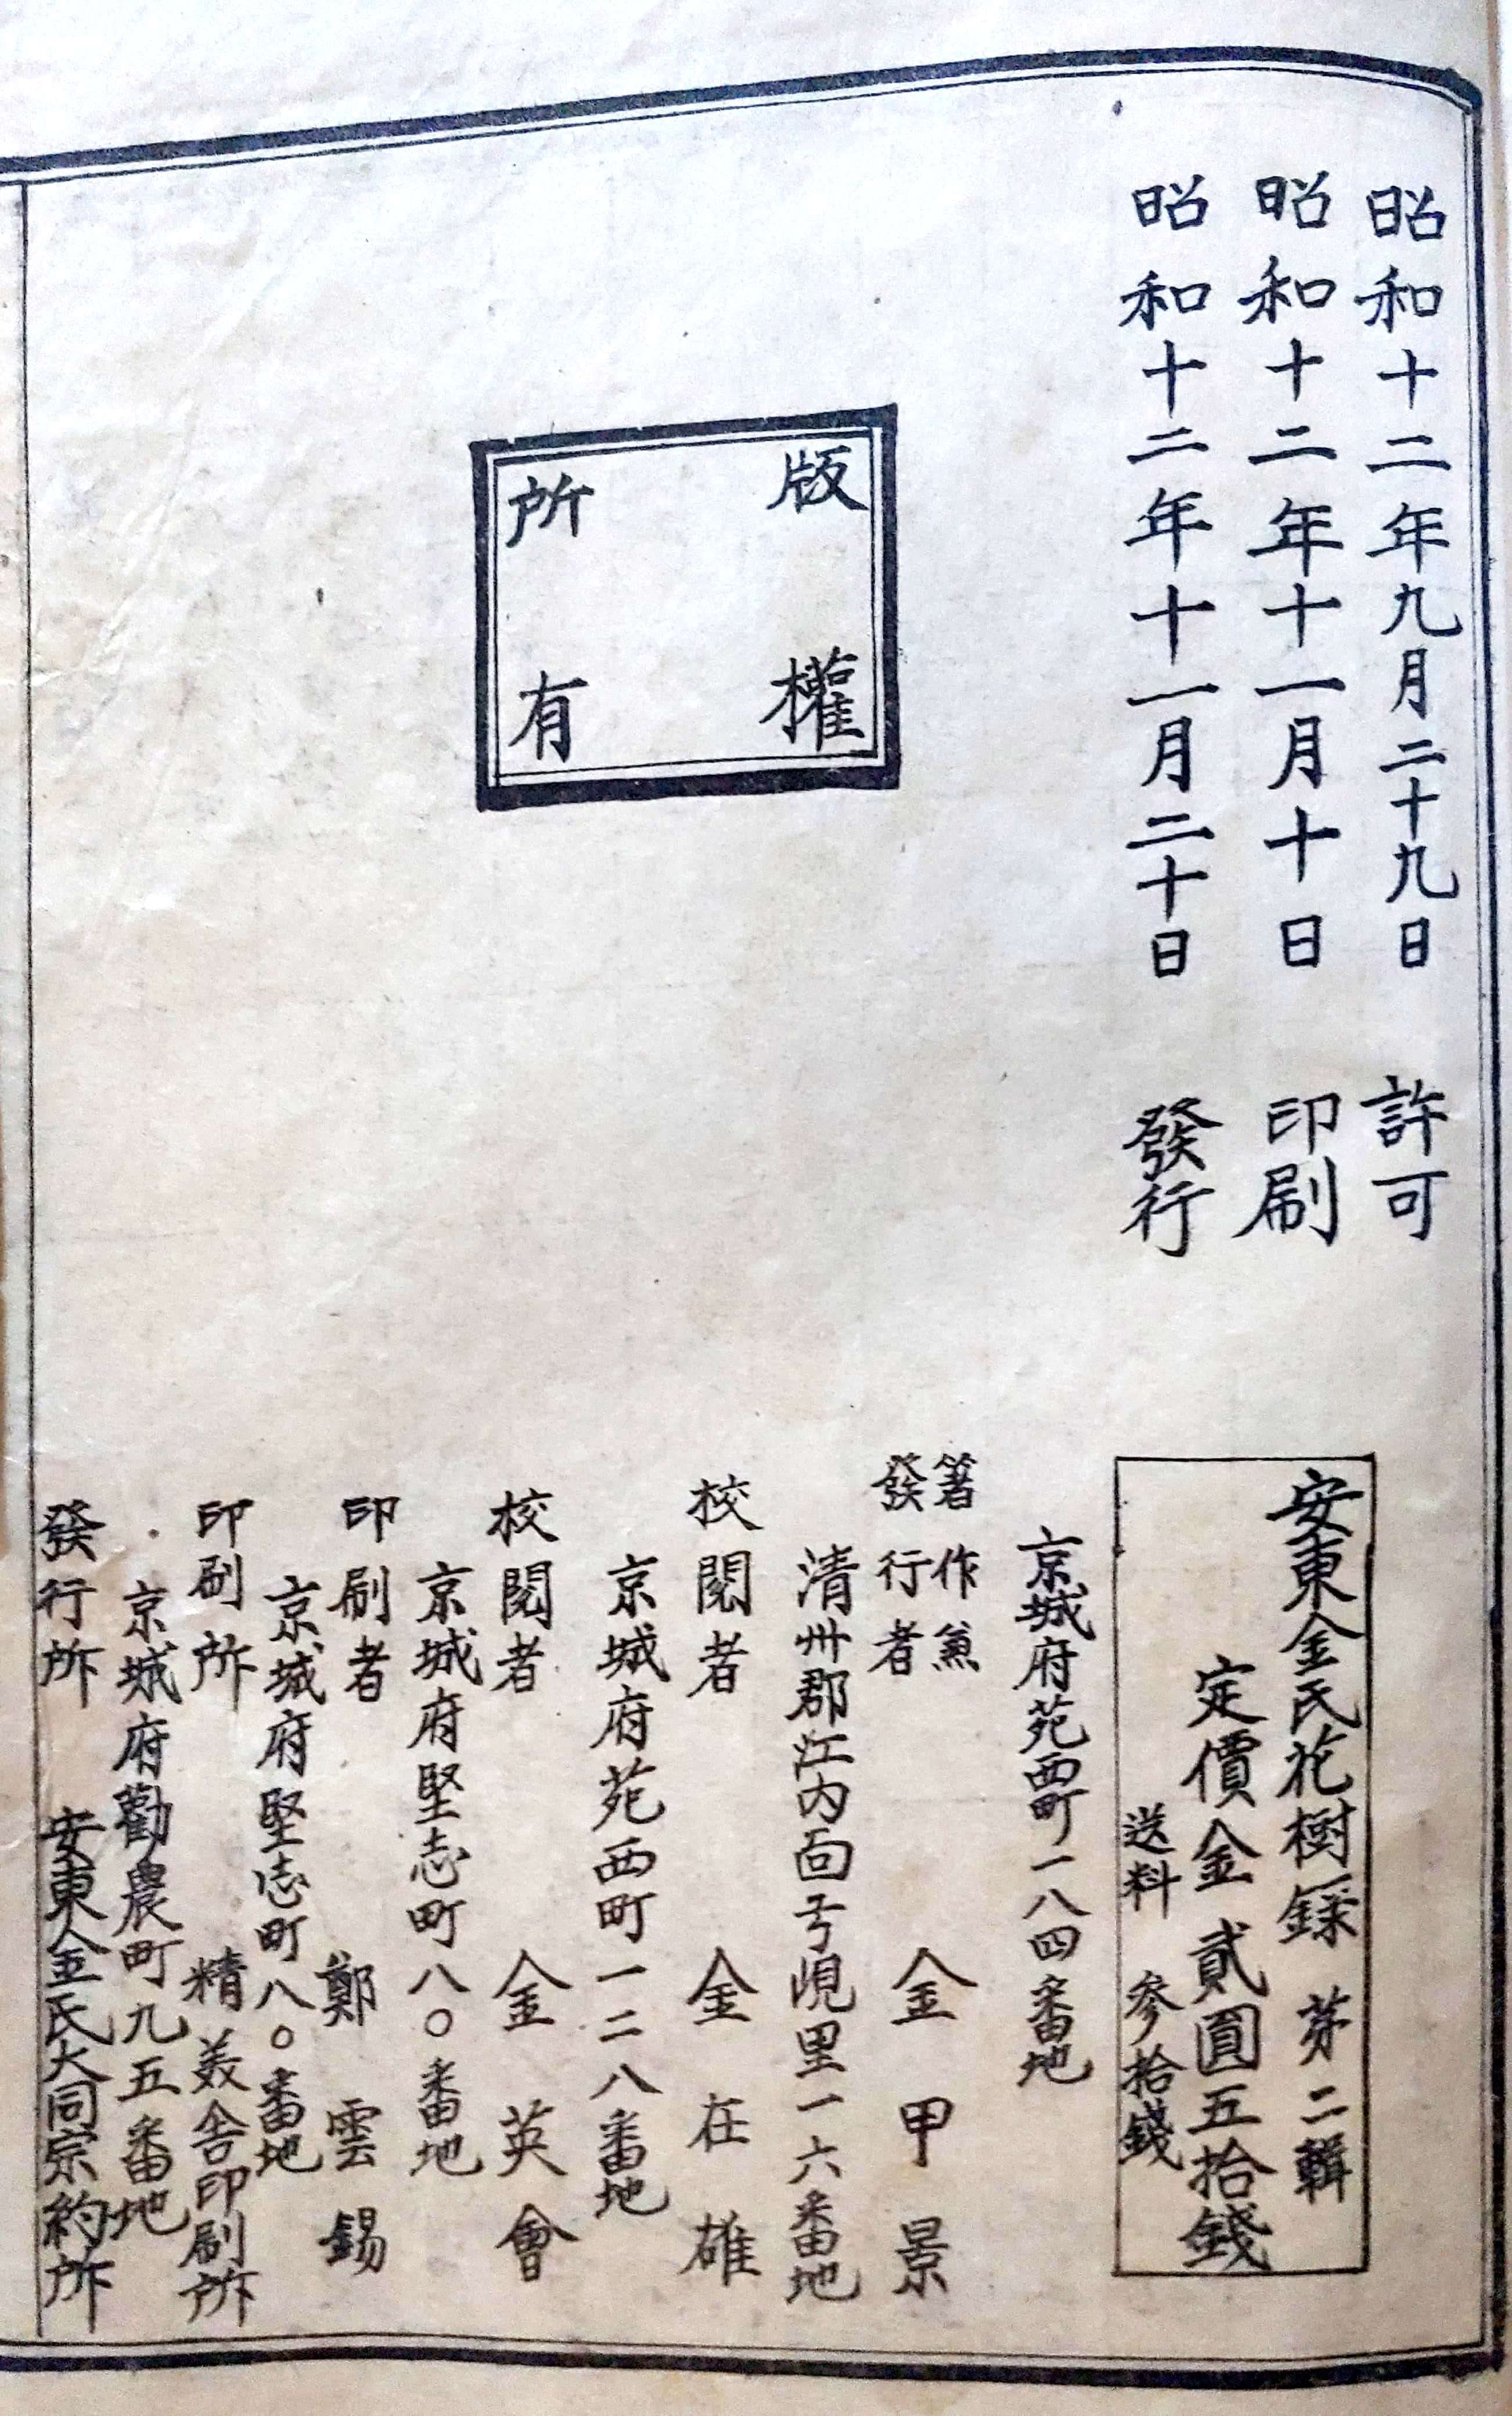 昭和十二年九月二十九日 許可
昭和十二年十一月十日 印刷
昭和十二年十一月二十日 發行
版權
所有
安東金氏花樹錄 第二輯
定價金貳圓五拾錢
送料 参拾錢
京城府苑西町一八四番地
著作兼
發行者 金甲景
清州郡江內面 峴里一六番地
校閱者 金在雄
京城府苑西町一二八番地
校閱者 金英會
京城府堅志町八〇番地
印刷者 鄭雲錫
京城府堅志町八〇番地
印刷所 精美舍印刷所
京城府勸農町九五番地
發行所 安東金氏大同宗約所